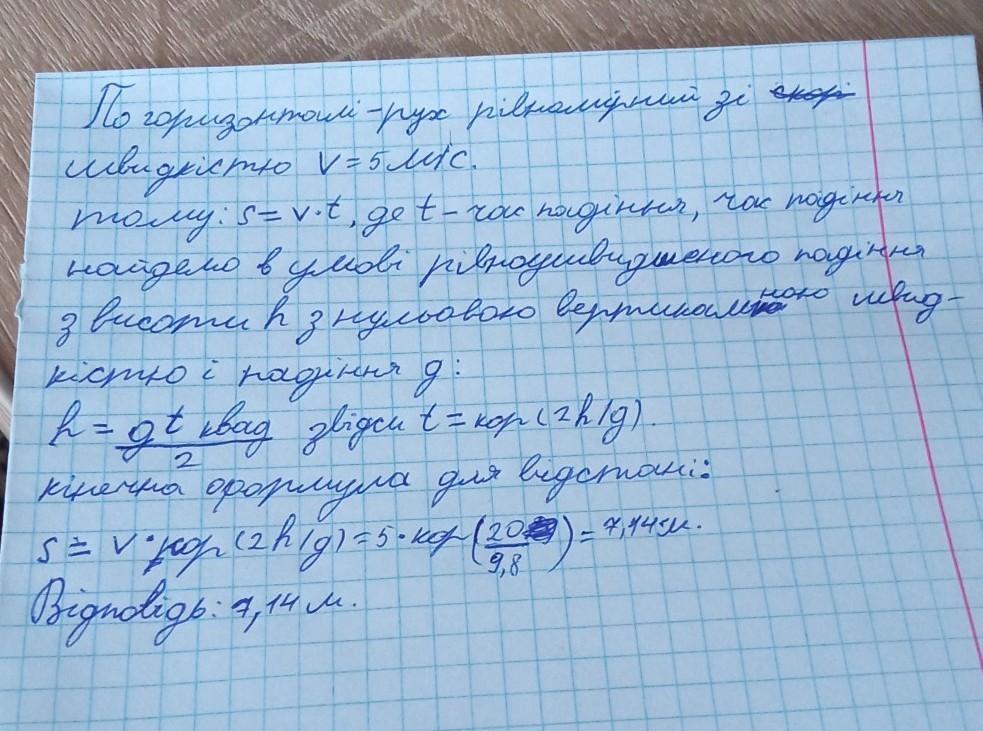 По горизонталі - рух рівномірний зі скорі
швидкістю v = 5 м/с.
тому: s = v·t, де t - час падіння, час падіння
найдемо в умові рівноушвидшеного падіння
з висоти h з нульовою вертикальною швид-
кістю і падіння g:
h = gt квад / 2 звідси t = кор (2h/g).
кінечна формула для відстані:
s = v·кор (2h/g) = 5·кор (20/9,8) = 7,14 м.
Відповідь: 7,14 м.